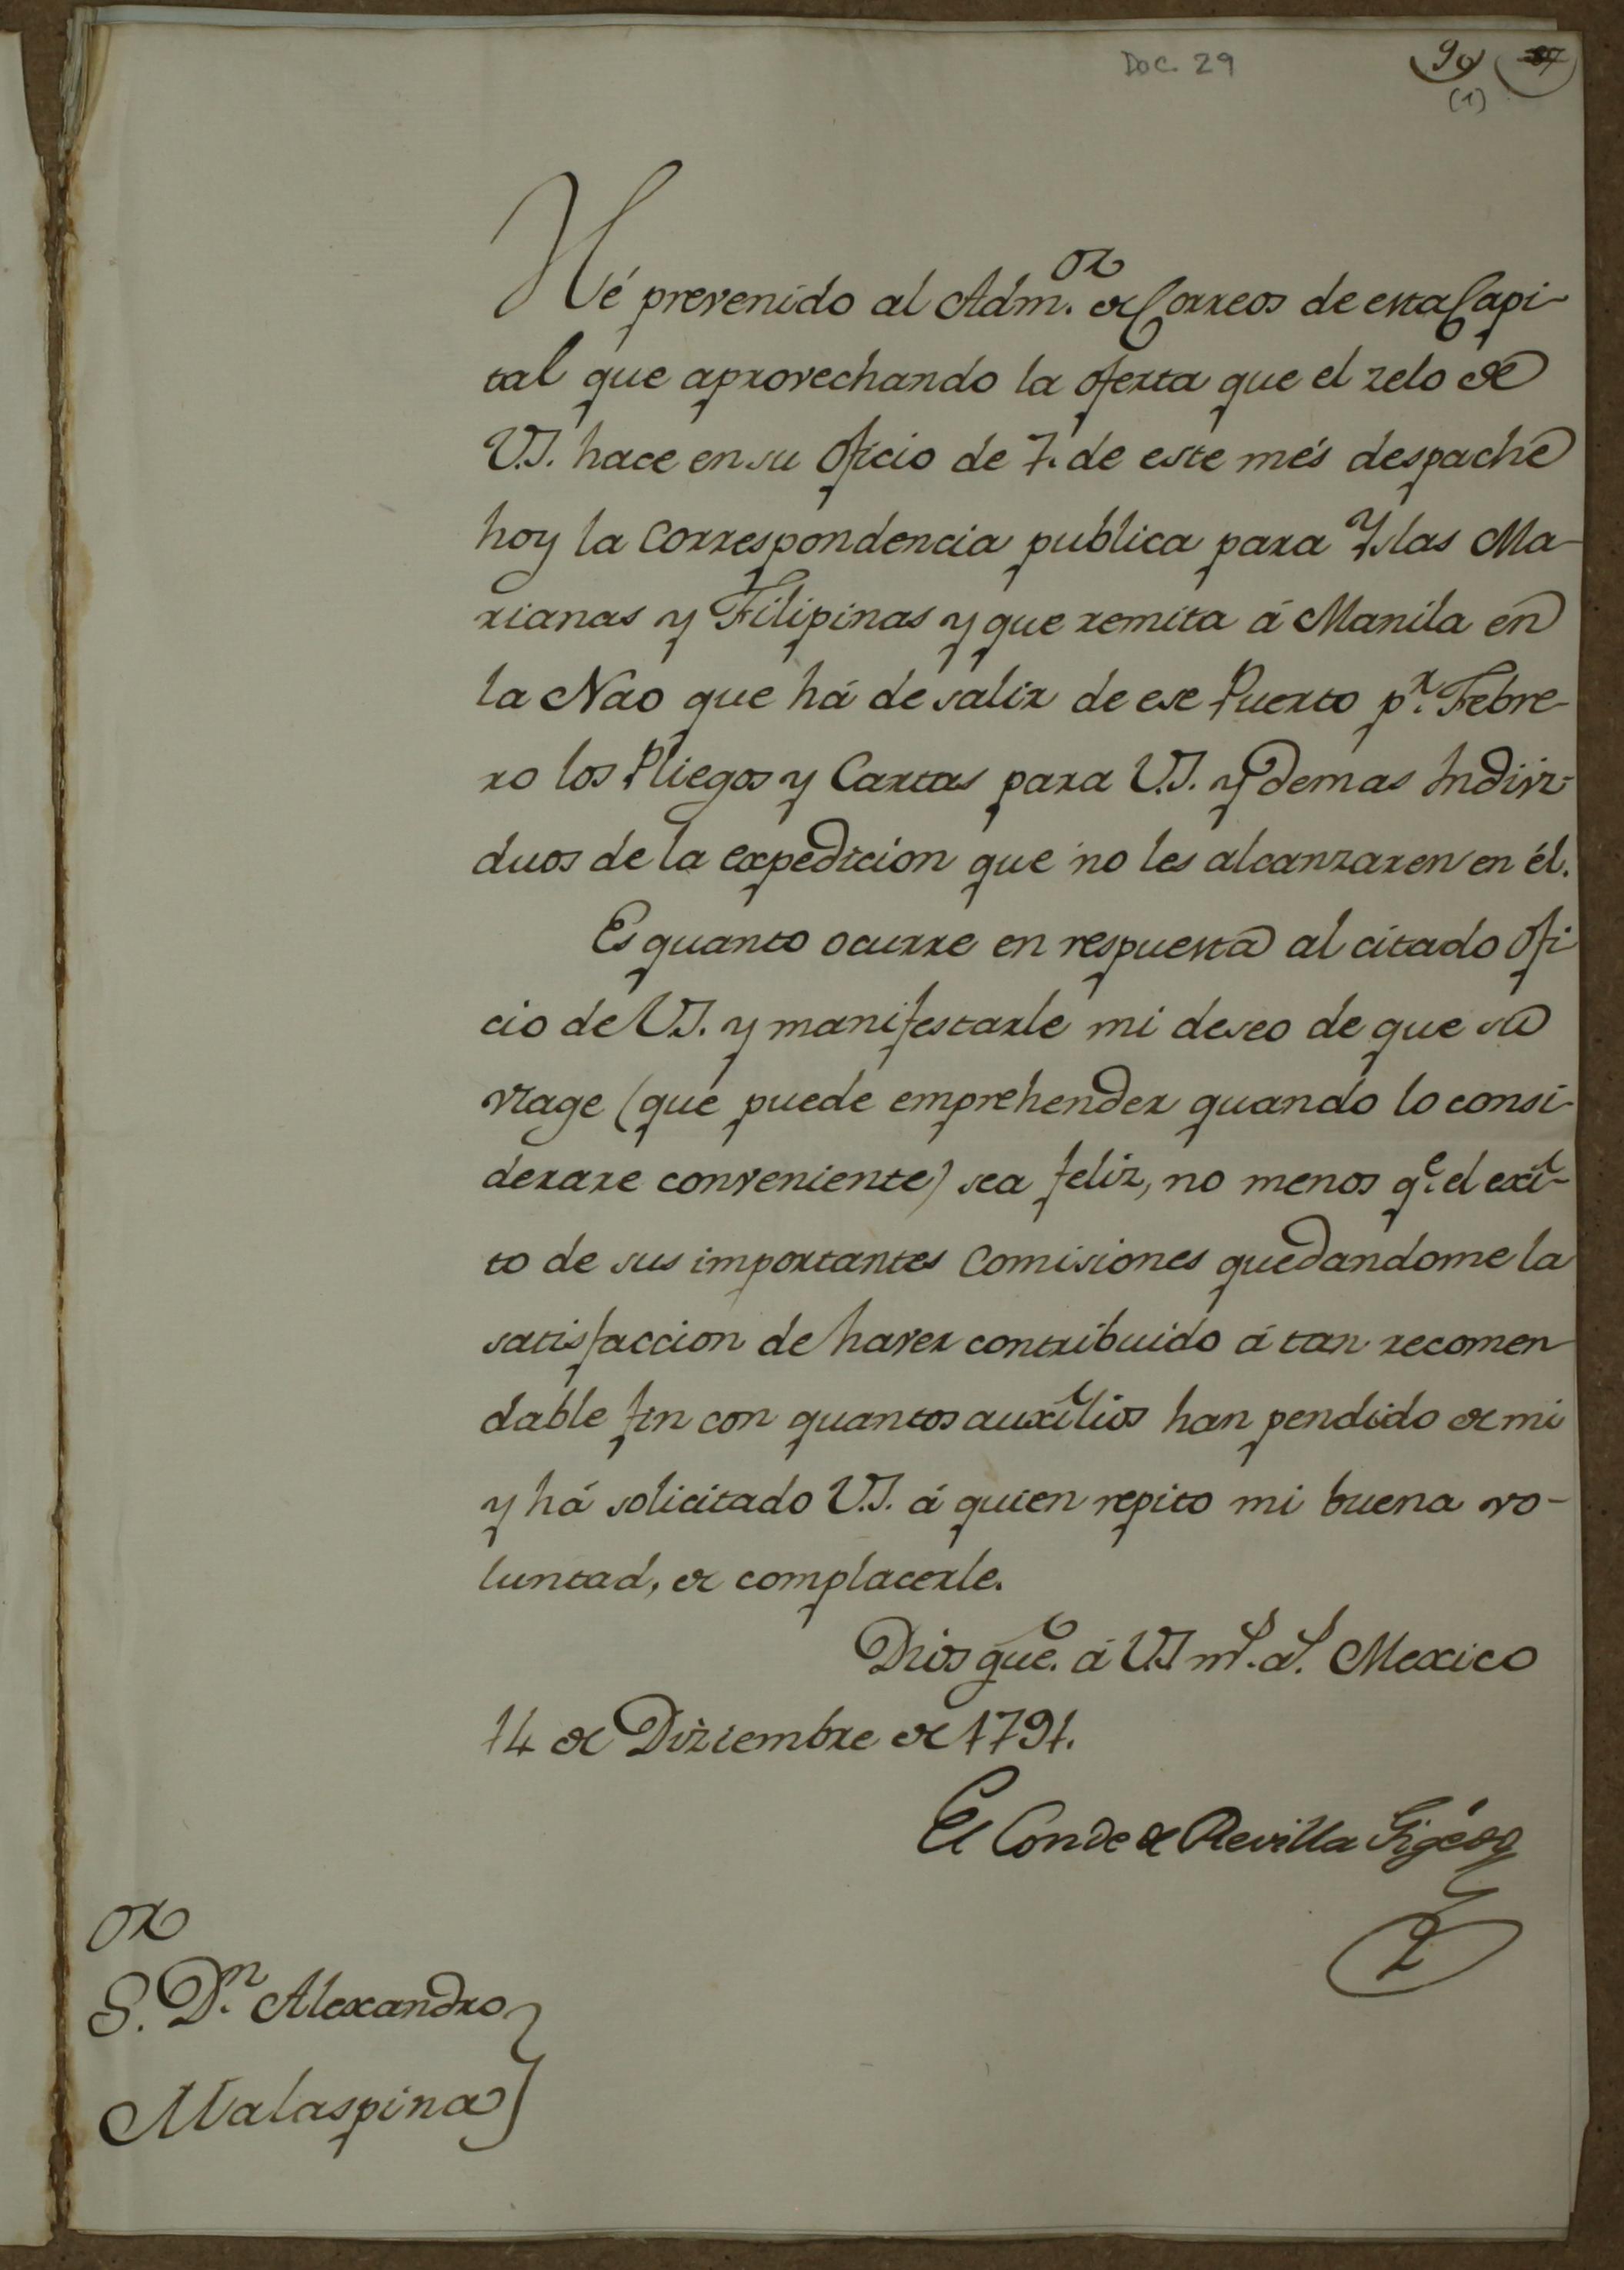 Doc. 29
90 87
(1)
Hé prevenido al Adm.or de Correos de esta Capi-
tal que aprovechando la oferta que el zelo de
V.S. hace en su Oficio de 7. de este més despache
hoy la correspondencia publica para Yslas Ma-
rianas y Filipinas y que remita á Manila en
la Nao que há de salir de ese Puerto p.r Febre-
ro los Pliegos y Cartas para V.S. y demas Indivi-
duos de la expedicion que no les alcanzaren en él.
Es quanto ocurre en respuesta al citado Ofi
cio de V.S. y manifestarle mi deseo de que su
viage (que puede emprehender quando lo consi-
derare conveniente) sea feliz, no menos q.e el exî-
to de sus importantes Comisiones quedandome la
satisfaccion de haver contribuido á tan recomen
dable fin con quantos auxîlios han pendido de mi
y há solicitado V.S. á quien repito mi buena vo-
luntad, de complacerle.
Dios gue. á V.S. m.s a.s Mexico
14 de Diziembre de 1791.
El Conde de Revilla Gigédo
S.or D.n Alexandro
Malaspina